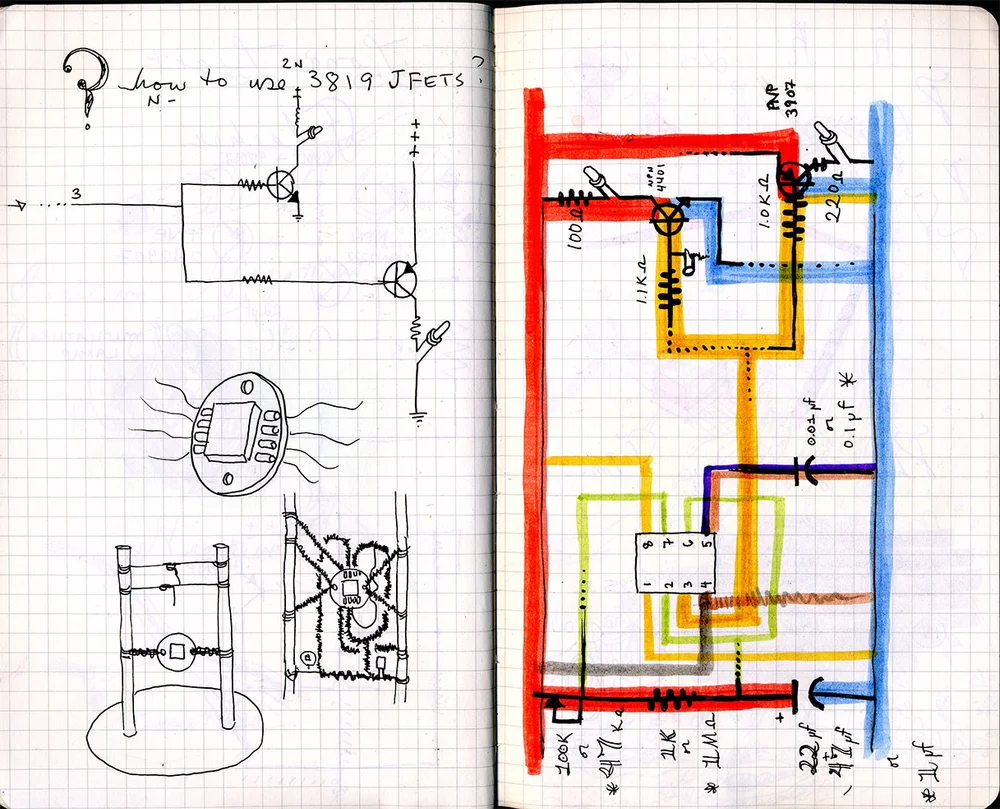 ? how to use 2N 3819 JFETS?
N-
+
+++
3
PNP
3907
NPN
4401
100Ω
1.0KΩ
220Ω
1.1KΩ
0.01µf
or
0.1µf *
8 7 6 5
1 2 3 4
100K
or
* 47KΩ
1K
or
* 1MΩ
+
22µf
47µf
or
* 1µf